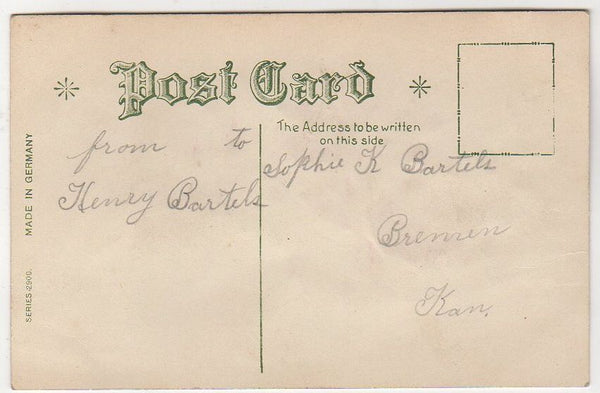 Post Card
The Address to be written
on this side
from to
Henry Bartels
Sophie K Bartels
Bremen
Kan.
MADE IN GERMANY
SERIES 2900.